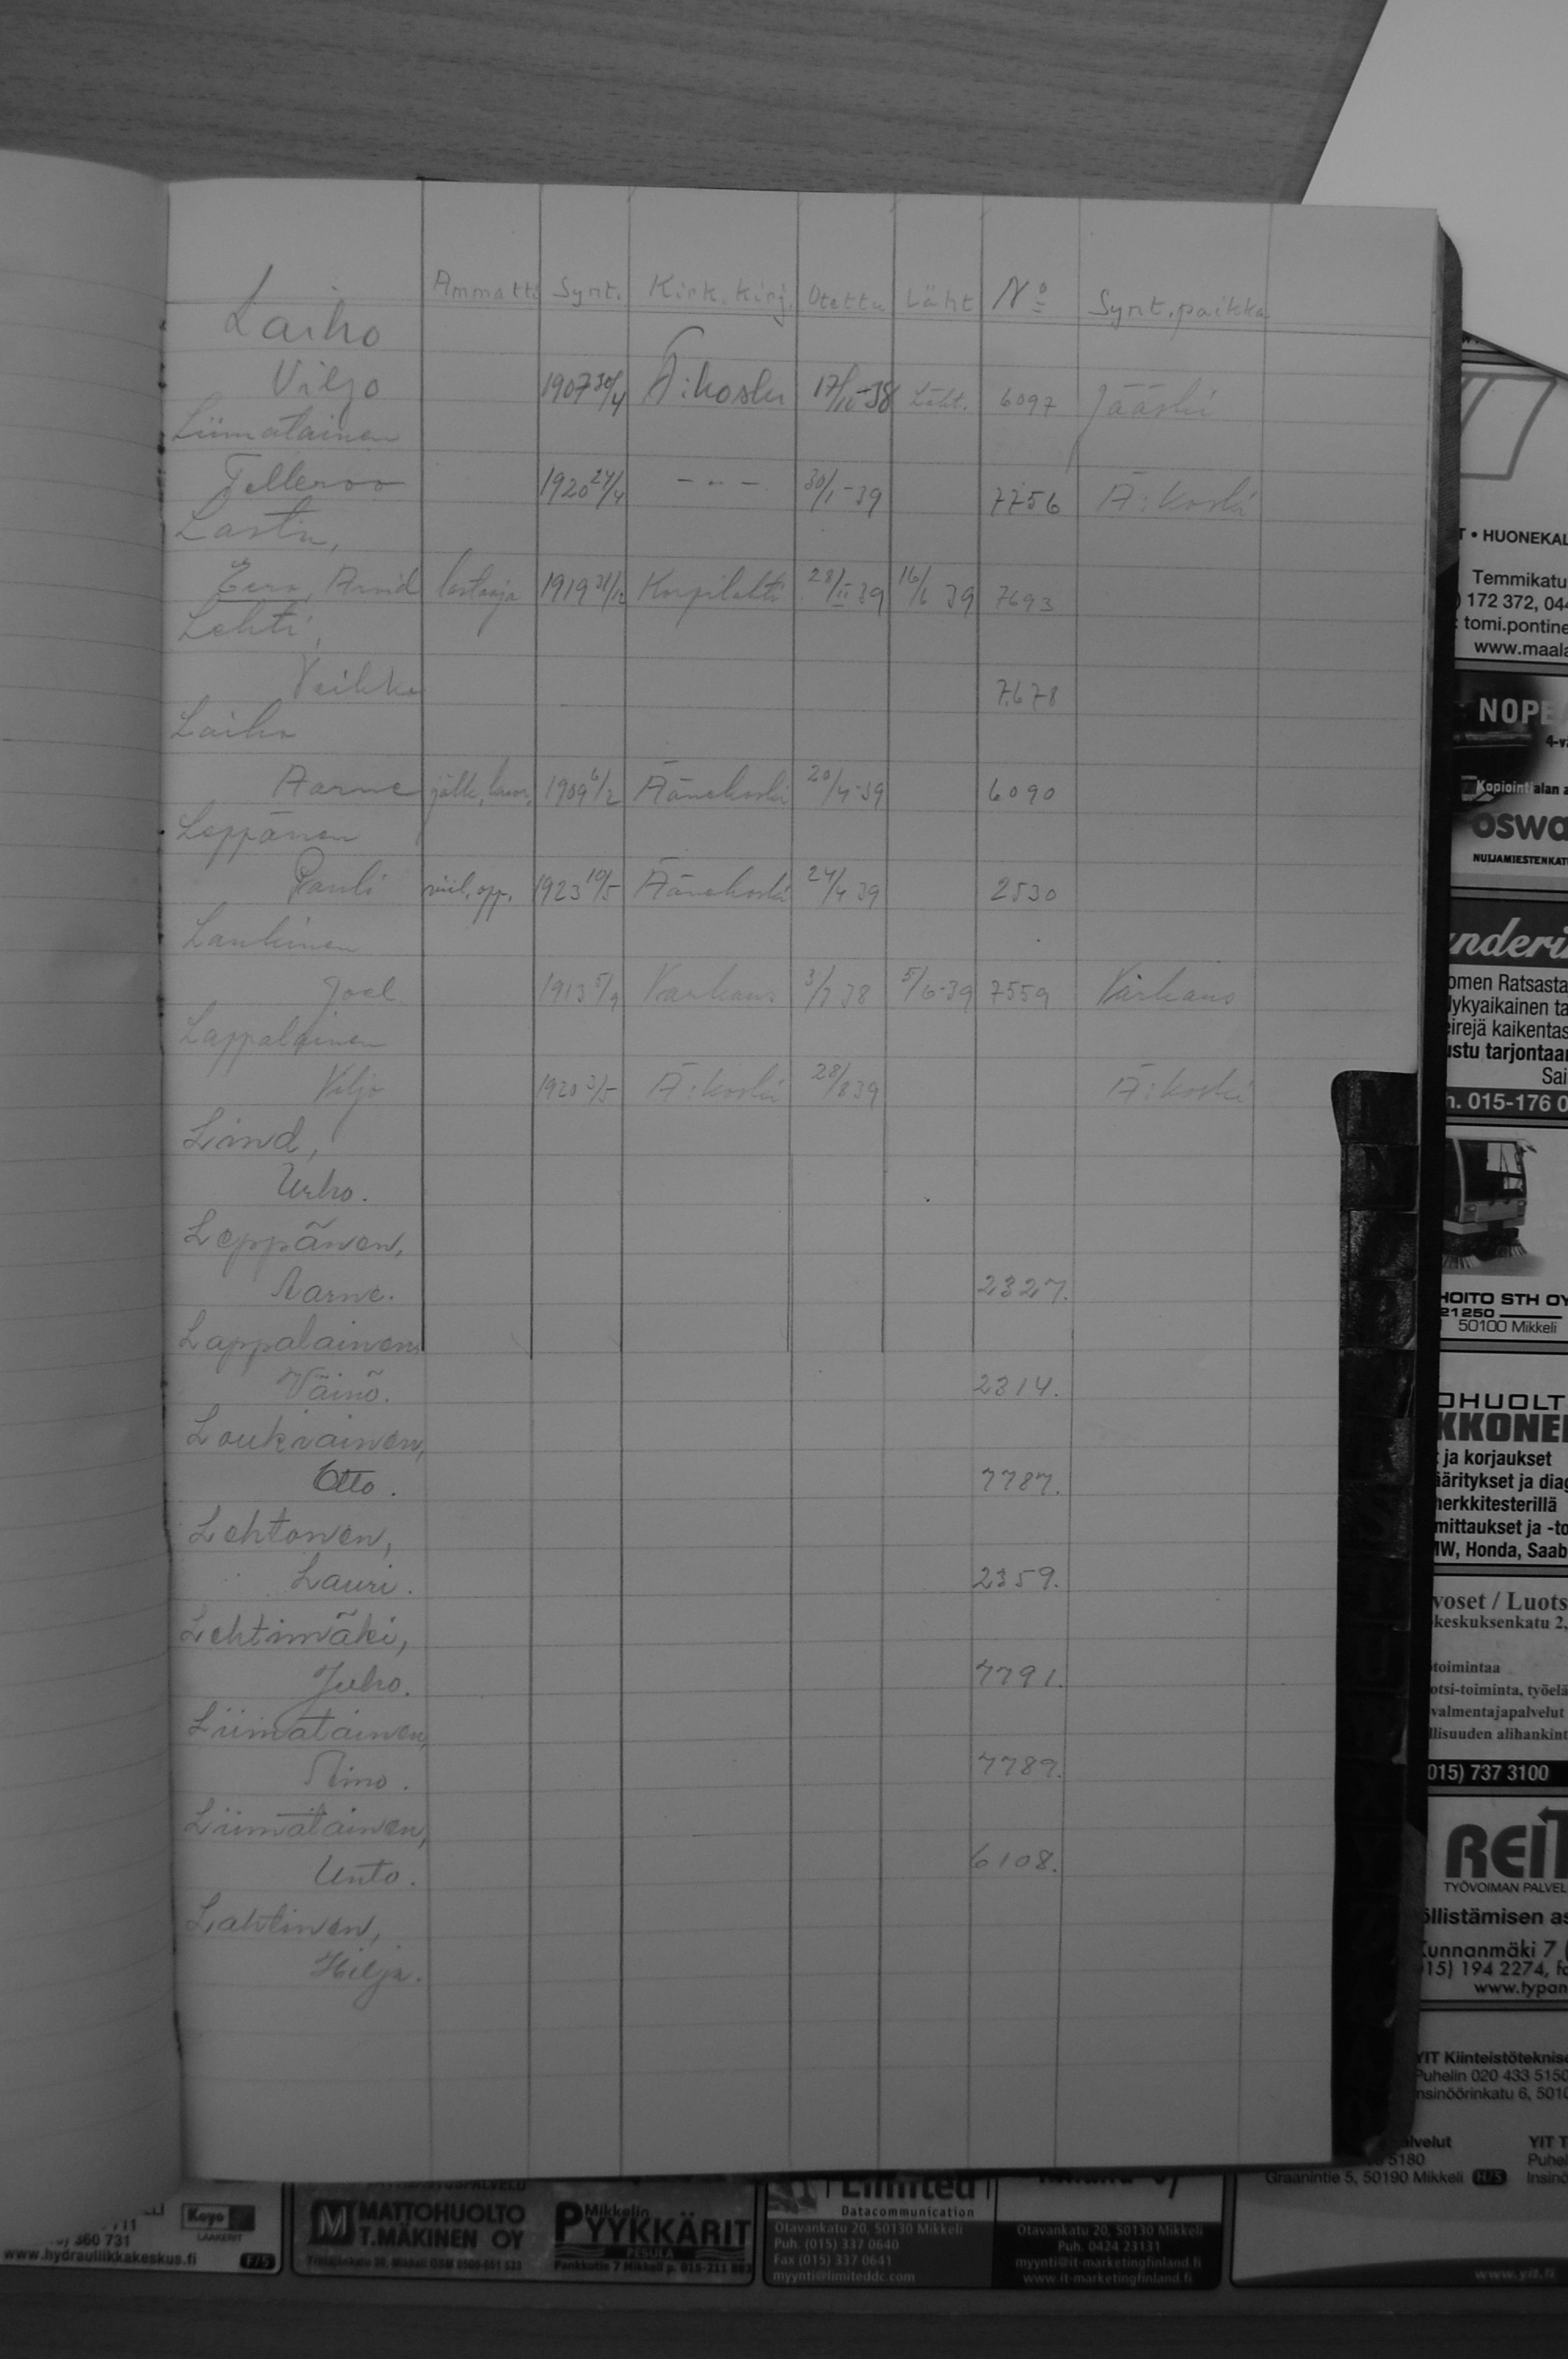 Ammatti Synt. Kirk.kirj. Otettu Läht No Synt.paikka
Laiho
Viljo 1907 30/4 Ä:koski 17/10-38 Läht. 6097 Jääski
Liimatainen
Tellervo 1920 24/4 - " - 30/1-39 7756 Ä:koski
Lastu,
Eero, Arvid lastaaja 1919 31/12 Korpilahti 28/II 39 16/6 39 7693
Lehti,
Veikko 7678
Laiho
Aarne 1909 6/2 Äänekoski 20/4-39 6090
Leppänen
Pauli viil.opp. 1923 10/5 Äänekoski 24/4 39 2530
Laukinen
Joel 1913 5/9 Varkaus 3/7 38 5/6-39 7559 Varkaus
Lappalainen
Viljo 1920 3/5 Ä:koski 28/8 39 Ä:koski
Lind,
Urho.
Leppänen,
Aarne. 2327.
Lappalainen,
Väinö. 2314.
Loukiainen,
Otto. 7787.
Lehtonen,
Lauri. 2359.
Lehtimäki,
Juho. 7791.
Liimatainen,
Aino. 7789.
Liimatainen,
Unto. 6108.
Lahtinen,
Hilja.
HUONEKAL
Temmikatu
172 372, 044
tomi.pontine
www.maala
NOPE
Kopiointialan a
oswa
NUIJAMIESTENKATU
nderi
omen Ratsasta
lykyaikainen ta
eirejä kaikentas
ustu tarjontaan
Sai
n. 015-176 0
HOITO STH OY
21250
50100 Mikkeli
OHUOLT
KKONEN
ja korjaukset
ääritykset ja diag
merkkitesterillä
mittaukset ja -to
MW, Honda, Saab
voset / Luots
keskuksenkatu 2,
toimintaa
otsi-toiminta, työelä
valmentajapalvelut
llisuuden alihankint
015) 737 3100
REIT
TYÖVOIMAN PALVEL
öllistämisen as
Kunnanmäki 7
15) 194 2274, fa
www.typan
YIT Kiinteistöteknise
Puhelin 020 433 5150
nsinöörinkatu 6, 5010
alvelut YIT T
5180 Puhel
Graanintie 5, 50190 Mikkeli H/5 Insinö
www.yit.fi
Koyo
LAAKERIT
360 731
www.hydrauliikkakeskus.fi F/5
MATTOHUOLTO
T.MÄKINEN OY
Mikkelin
PYYKKÄRIT
PESULA
Pankkutie 7 Mikkeli p. 015-211
Limited
Datacommunication
Otavankatu 20, 50130 Mikkeli
Puh. (015) 337 0640
Fax (015) 337 0641
myynti@limiteddc.com
Otavankatu 20, 50130 Mikkeli
Puh. 0424 23131
myynti@it-marketingfinland.fi
www.it-marketingfinland.fi